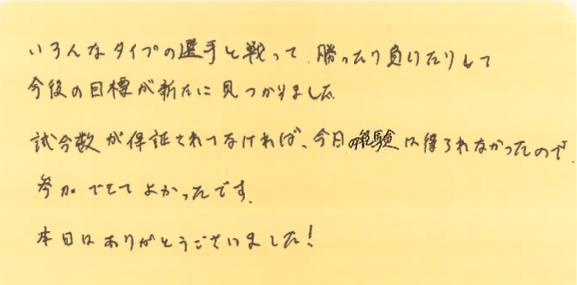 いろんなタイプの選手と戦って、勝ったり負けたりして
今後の目標が新たに見つかりました。
試合数が保証されてなければ、今日の経験は得られなかったので、
参加できてよかったです。
本日はありがとうございました!